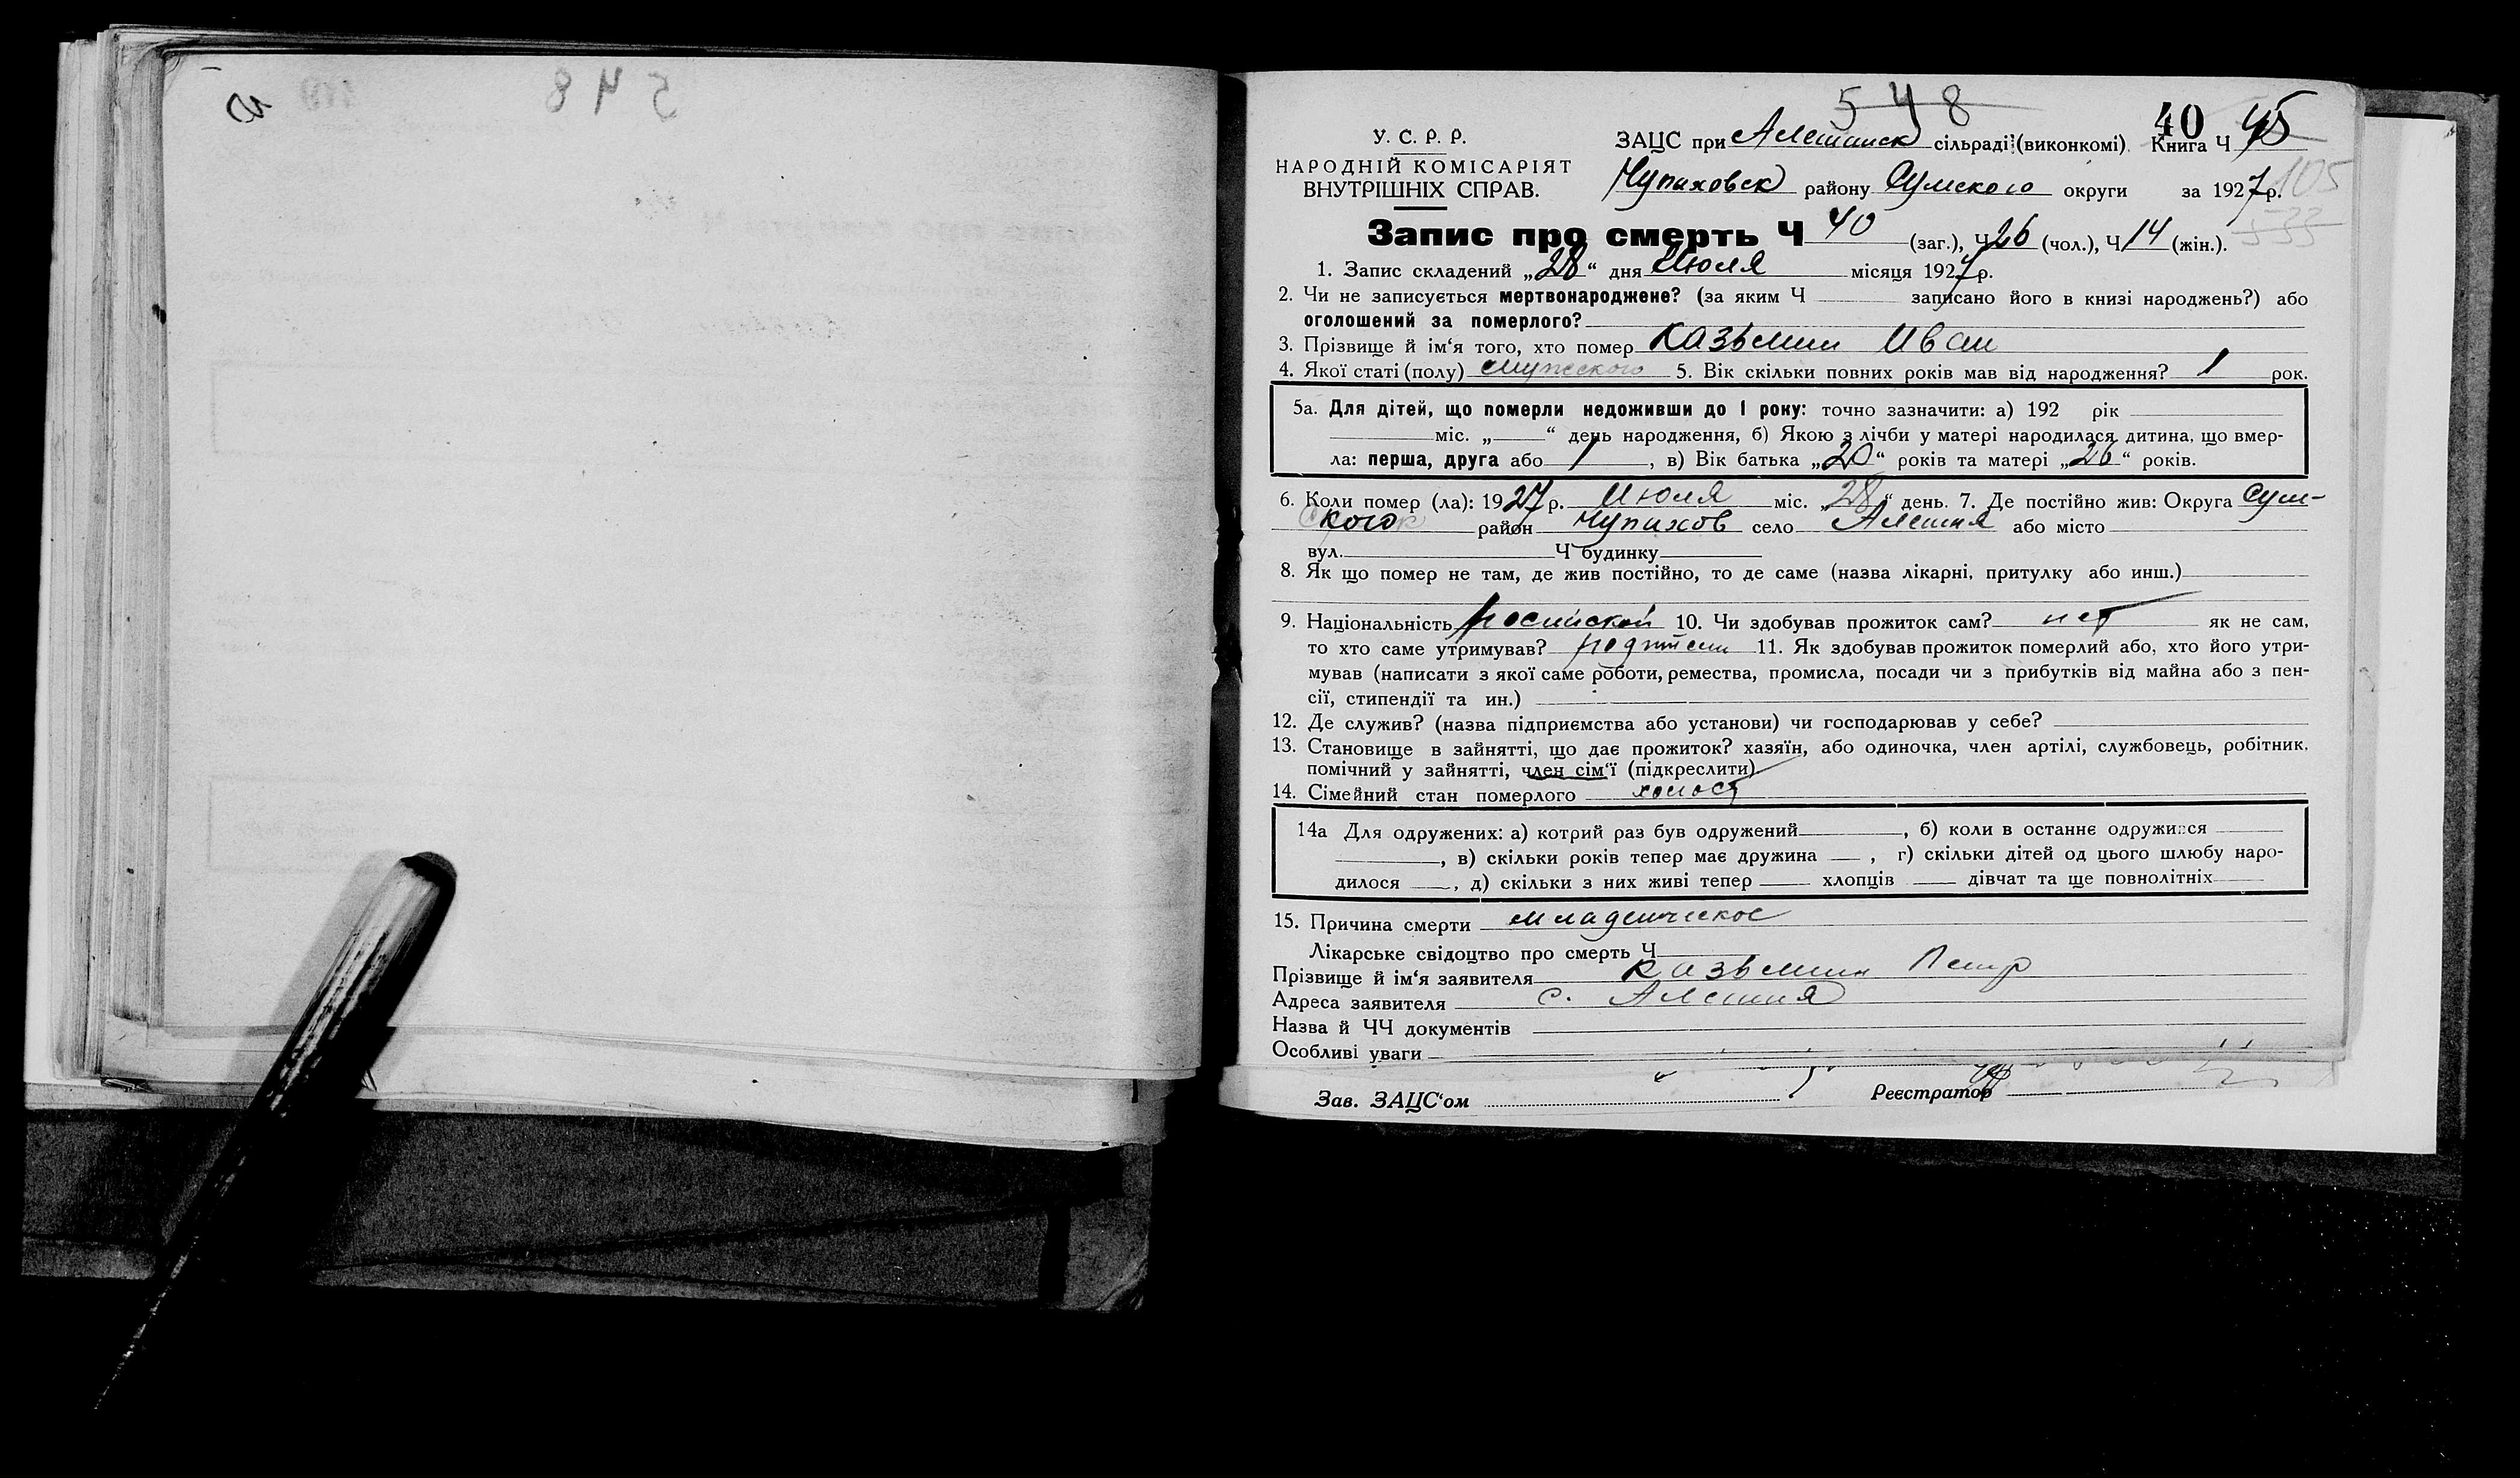 5 4 8
40 45
У. С. Р. Р.
НАРОДНІЙ КОМІСАРІЯТ
ВНУТРІШНІХ СПРАВ.
ЗАЦС при Алешинск сільраді (виконкомі). Книга Ч
Чупаховск району Сумского округи за 1927 р.
105
533
Запис про смерть Ч 40 (заг.), Ч 26 (чол.), Ч 14 (жін.).
1. Запис складений „28“ дня Июля місяця 1927 р.
2. Чи не записується мертвонароджене? (за яким Ч записано його в книзі народжень?) або
оголошений за померлого?
3. Прізвище й ім'я того, хто помер Казьмин Иван
4. Якої статі (полу) мужеского 5. Вік скільки повних років мав від народження? 1 рок.
5а. Для дітей, що померли недоживши до 1 року: точно зазначити: а) 192 рік
міс. „ “ день народження, б) Якою з лічби у матері народилася дитина, що вмер-
ла: перша, друга або 1, в) Вік батька „20“ років та матері „26“ років.
6. Коли помер (ла): 1927 р. Июля міс. „28“ день. 7. Де постійно жив: Округа Сум-
ского район Чупахов село Алешня або місто
вул. Ч будинку
8. Як що помер не там, де жив постійно, то де саме (назва лікарні, притулку або инш.)
9. Національність росийской 10. Чи здобував прожиток сам? нет як не сам,
то хто саме утримував? родители 11. Як здобував прожиток померлий або, хто його утри-
мував (написати з якої саме роботи, ремества, промисла, посади чи з прибутків від майна або з пен-
сії, стипендії та ин.)
12. Де служив? (назва підприємства або установи) чи господарював у себе?
13. Становище в зайнятті, що дає прожиток? хазяїн, або одиночка, член артілі, службовець, робітник,
помічний у зайнятті, член сім'ї (підкреслити)
14. Сімейний стан померлого холост
14а Для одружених: а) котрий раз був одружений , б) коли в останнє одружився
, в) скільки років тепер має дружина , г) скільки дітей од цього шлюбу наро-
дилося , д) скільки з них живі тепер хлопців дівчат та ще повнолітніх
15. Причина смерти младенческое
Лікарське свідоцтво про смерть Ч
Прізвище й ім'я заявителя Казьмин Петр
Адреса заявителя с. Алешня
Назва й ЧЧ документів
Особливі уваги
Зав. ЗАЦС'ом Реєстратор